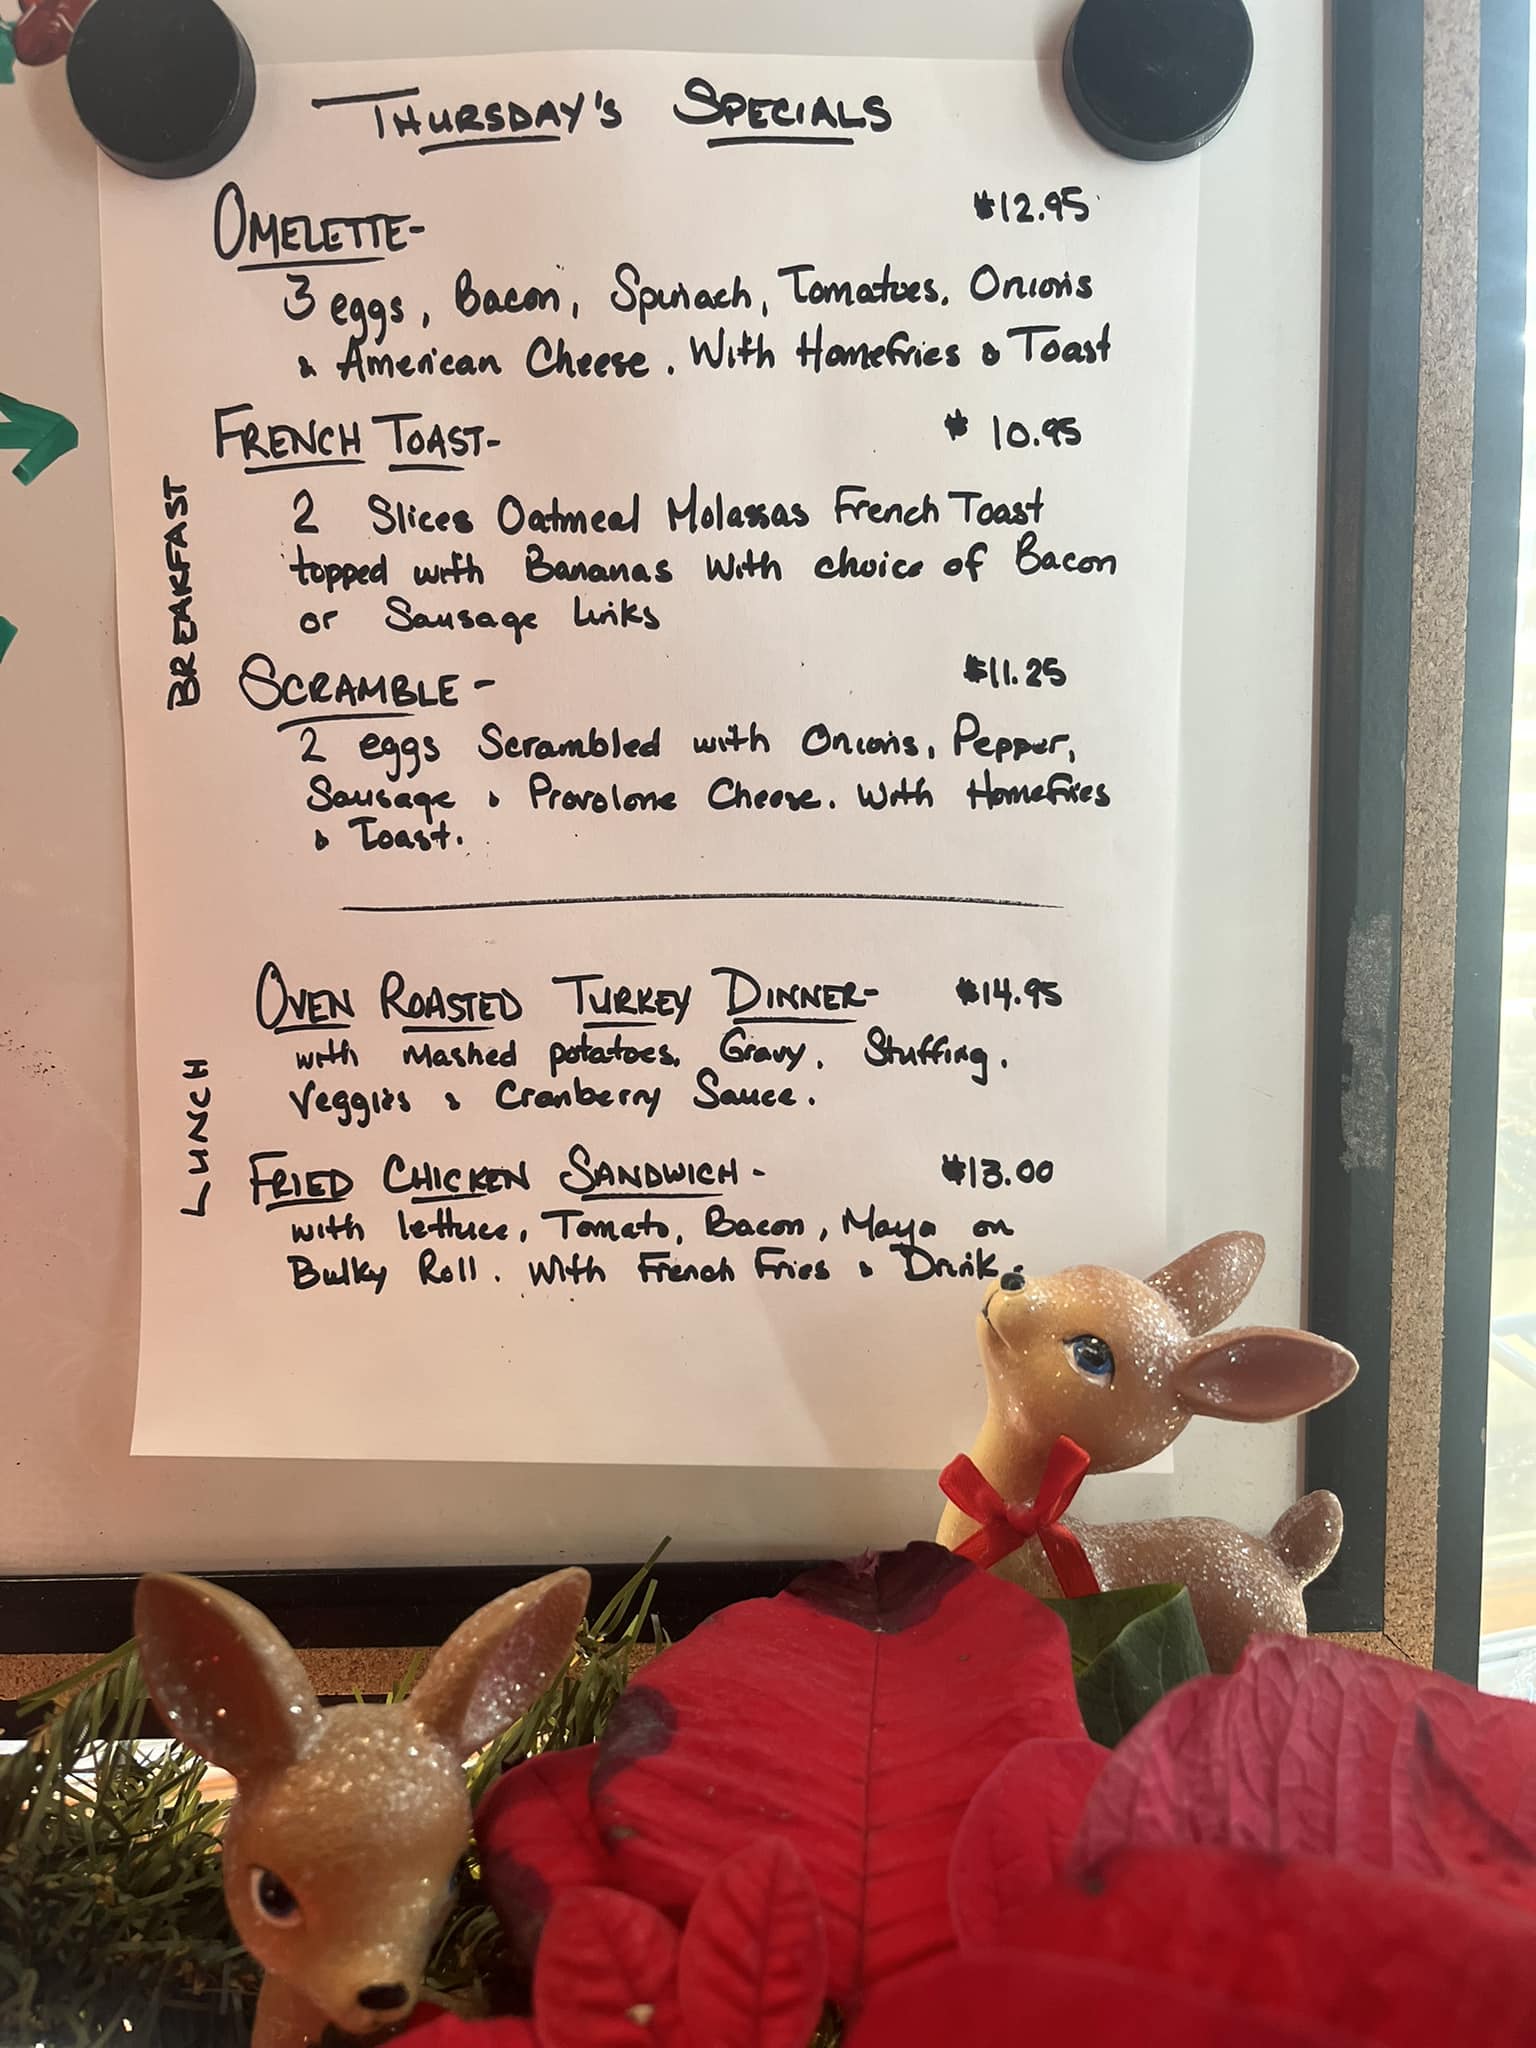 THURSDAY'S SPECIALS
OMELETTE- $12.95
3 eggs, Bacon, Spinach, Tomatoes, Onions
& American Cheese. With Homefries & Toast
FRENCH TOAST- $10.95
2 Slices Oatmeal Molassas French Toast
topped with Bananas with choice of Bacon
or Sausage Links
SCRAMBLE- $11.25
2 eggs Scrambled with Onions, Pepper,
Sausage & Provolone Cheese. With Homefries
& Toast.
BREAKFAST
OVEN ROASTED TURKEY DINNER- $14.95
with Mashed potatoes, Gravy, Stuffing,
Veggies & Cranberry Sauce.
FRIED CHICKEN SANDWICH- $13.00
with lettuce, Tomato, Bacon, Mayo on
Bulky Roll. With French Fries & Drink.
LUNCH